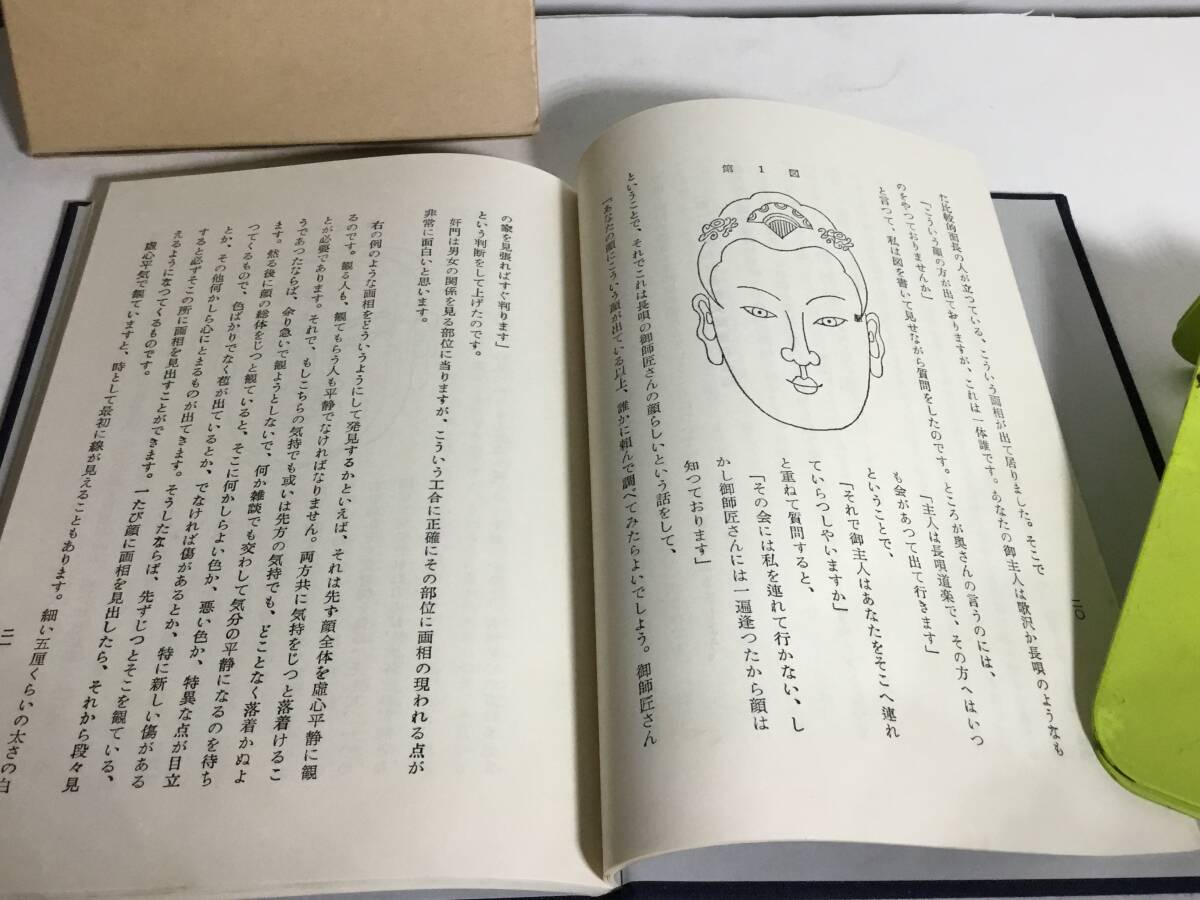 た比較的面長の人が立つている、こういう面相が出て居りました。そこで
「こういう顔の方が出ておりますが、これは一体誰です。あなたの御主人は歌沢か長唄のようなも
のをやつておりませんか」
と言つて、私は図を書いて見せながら質問をしたのです。ところが奥さんの言うのには、
「主人は長唄道楽で、その方へはいつ
も会があつて出て行きます」
ということで、
「それで御主人はあなたをそこへ連れ
ていらつしやいますか」
と重ねて質問すると、
「その会には私を連れて行かない、し
かし御師匠さんには一遍逢つたから顔は
知つております」
第1図
ということで、それでこれは長唄の御師匠さんの顔らしいという話をして、
「あなたの顔にこういう顔が出ている以上、誰かに頼んで調べてみたらよいでしよう。御師匠さん
二〇
の家を見張ればすぐ判ります」
という判断をして上げたのです。
奸門は男女の関係を見る部位に当りますが、こういう工合に正確にその部位に面相の現われる点が
非常に面白いと思います。
右の例のような面相をどういうようにして発見するかといえば、それは先ず顔全体を虚心平静に観
るのです。観る人も、観てもらう人も平静でなければなりません。両方共に気持をじつと落着けるこ
とが必要であります。それで、もしこちらの気持でも或いは先方の気持でも、どことなく落着かぬよ
うであつたならば、余り急いで観ようとしないで、何か雑談でも交わして気分の平静になるのを待ち
ます。然る後に顔の総体をじつと観ていると、そこに何かしらよい色か、悪い色か、特異な点が目立
つてくるもので、色ばかりでなく苞が出ているとか、でなければ傷があるとか、特に新しい傷がある
とか、その他何かしら心にとまるものが出てきます。そうしたならば、先ずじつとそこを観ている、
すると必ずそこの所に面相を見出すことができます。一たび顔に面相を見出したら、それから段々見
えるようになつてくるものです。
虚心平気で観ていますと、時として最初に線が見えることもあります。細い五厘くらいの太さの白
二一